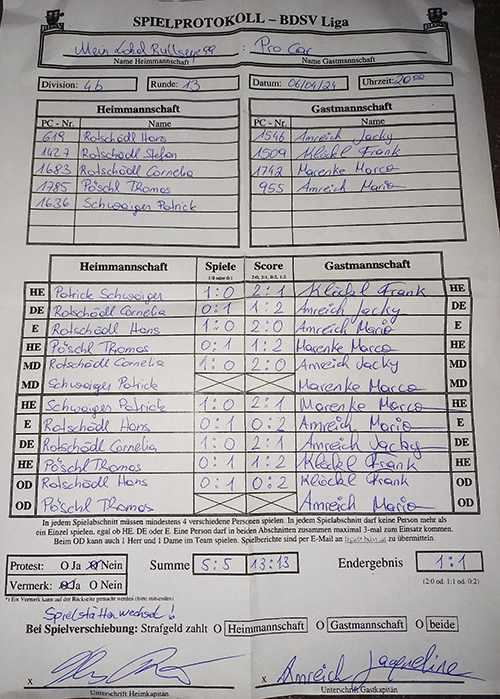 SPIELPROTOKOLL – BDSV Liga
Mein Lokal Bullseye 99 : Pro Car
Name Heimmannschaft Name Gastmannschaft
Division: 4b Runde: 13 Datum: 06/04/24 Uhrzeit: 20:00
Heimmannschaft Gastmannschaft
PC - Nr. Name PC - Nr. Name
619 Rotschödl Hans 1546 Amreich Jacky
1427 Rotschödl Stefan 1509 Klöckl Frank
1683 Rotschödl Cornelia 1742 Marenke Marco
1785 Pöschl Thomas 955 Amreich Mario
1636 Schwaiger Patrick
Heimmannschaft Spiele Score Gastmannschaft
1:0 oder 0:1 2:0, 2:1, 0:2, 1:2
HE Patrick Schwaiger 1:0 2:1 Klöckl Frank HE
DE Rotschödl Cornelia 0:1 1:2 Amreich Jacky DE
E Rotschödl Hans 1:0 2:0 Amreich Mario E
HE Pöschl Thomas 0:1 1:2 Marenke Marco HE
MD Rotschödl Cornelia 1:0 2:0 Amreich Jacky MD
MD Schwaiger Patrick Marenke Marco MD
HE Schwaiger Patrick 1:0 2:1 Marenke Marco HE
E Rotschödl Hans 0:1 0:2 Amreich Mario E
DE Rotschödl Cornelia 1:0 2:1 Amreich Jacky DE
HE Pöschl Thomas 0:1 1:2 Klöckl Frank HE
OD Rotschödl Hans 0:1 0:2 Klöckl Frank OD
OD Pöschl Thomas Amreich Mario OD
In jedem Spielabschnitt müssen mindestens 4 verschiedene Personen spielen. In jedem Spielabschnitt darf keine Person mehr als
ein Einzel spielen, egal ob HE, DE oder E. Eine Person darf in beiden Abschnitten zusammen maximal 3-mal zum Einsatz kommen.
Beim OD kann auch 1 Herr und 1 Dame im Team spielen. Spielberichte sind per E-Mail an zu übermitteln.
Protest: O Ja O Nein Summe 5:5 13:13 Endergebnis 1:1
Vermerk: O Ja O Nein (2:0 od. 1:1 od. 0:2)
*) Ein Vermerk kann auf der Rückseite gemacht werden (bitte
Spielstättenwechsel!
Bei Spielverschiebung: Strafgeld zahlt O Heimmannschaft O Gastmannschaft O beide
x x Amreich Jacqueline
Unterschrift Heimkapitän Unterschrift Gastkapitän